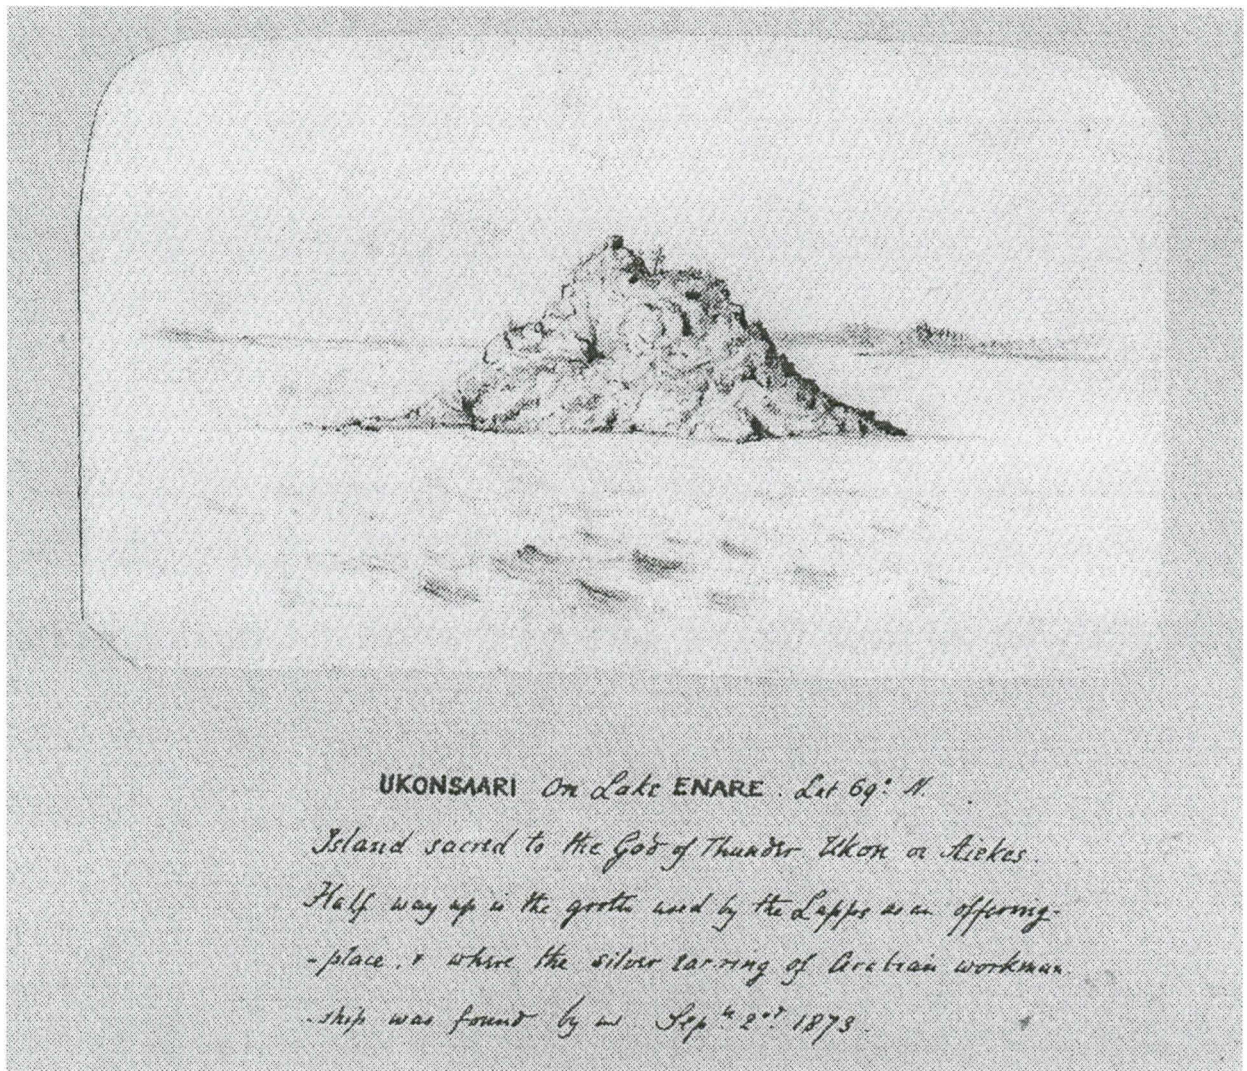 UKONSAARI on Lake ENARE. Lat 69° N.
Island sacred to the God of Thunder Ukon or Aiekes.
Half way up is the grotto used by the Lapps as an offering-
-place, & where the silver earring of Arabian workman-
-ship was found by us. Sept 2nd 1873.